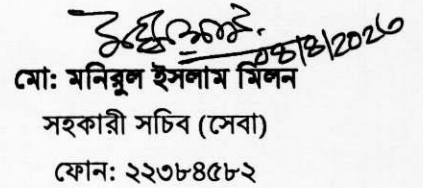 08/8/2026
মো: মনিরুল ইসলাম মিলন
সহকারী সচিব (সেবা)
ফোন: ২২৩৮৪৫৮২